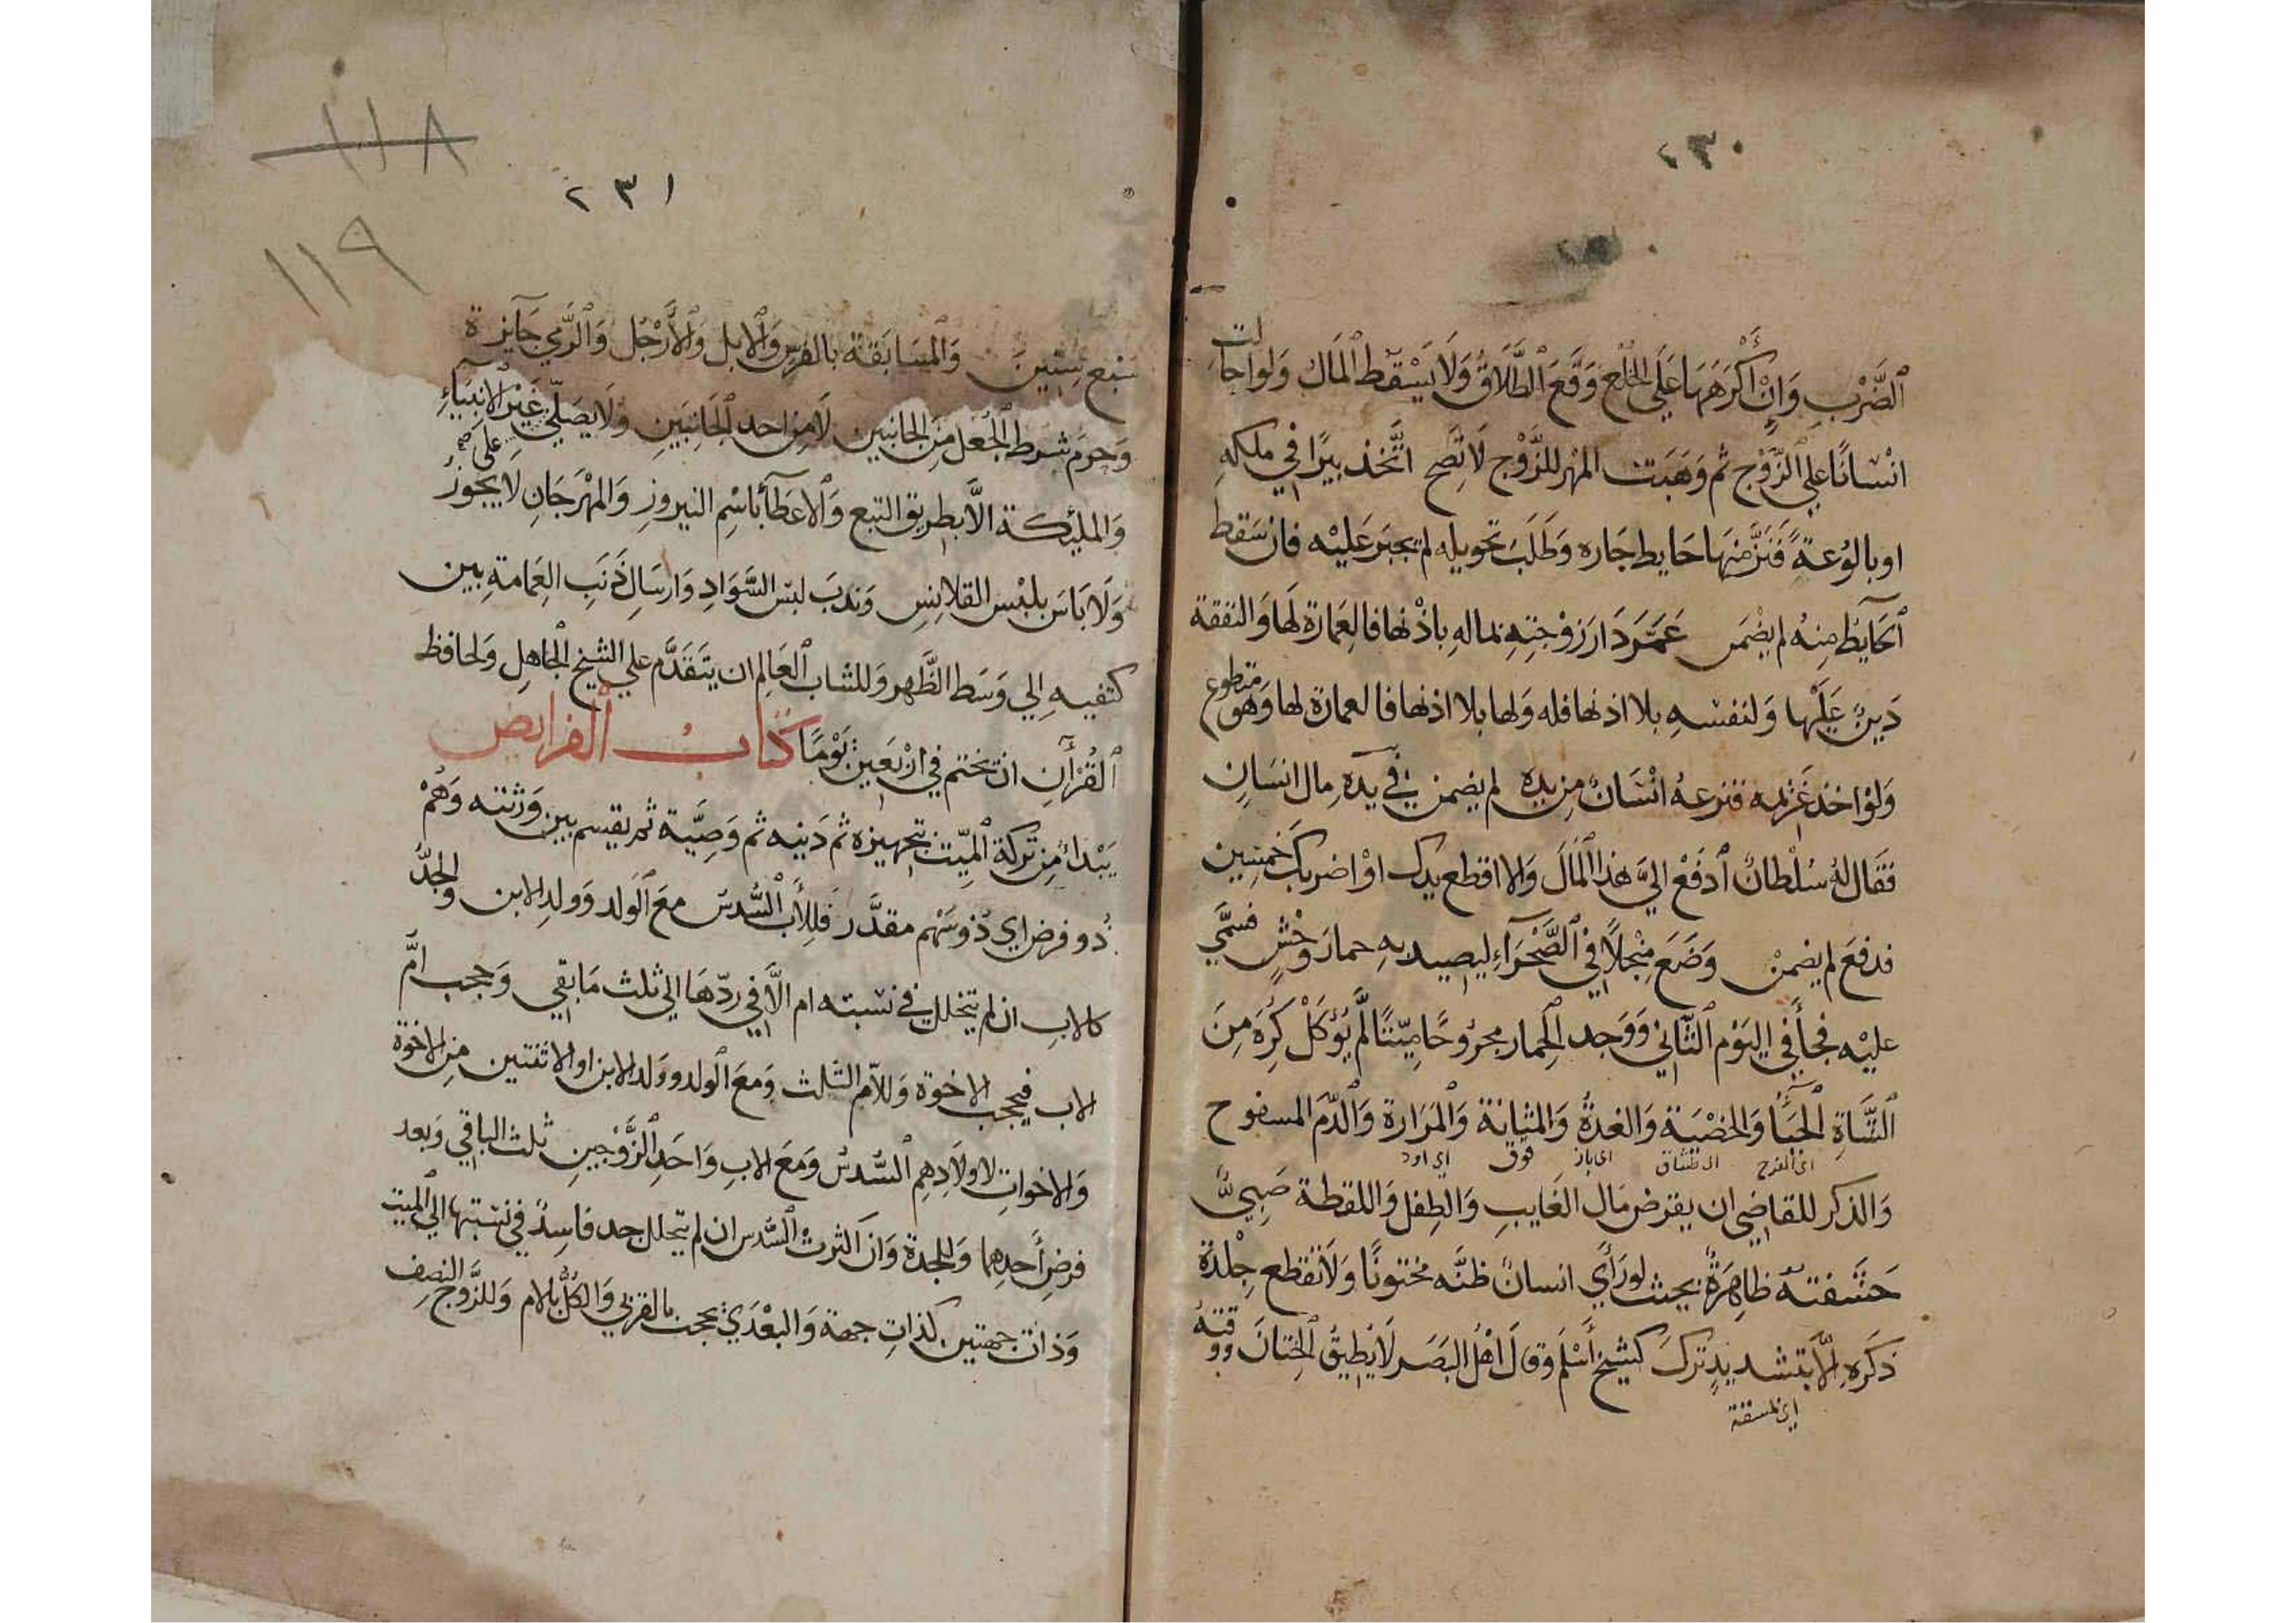 ٢٣٠
الضَّرْبِ وَاِنْ أَكْرَهَهَا عَلَى الخُلْعِ وَقَعَ الطَّلَاقُ وَلَا يَسْقُطُ المَالُ وَلَو احالت
انْسَانًا علي الزَّوْج ثم وَهَبَت المهر للزَّوْج لَا تَصِح اتَّخَذ بيرًا في ملكه
او بالوُعةً فَنَزَّ مِنْهَا حَايط جَاره وَطَلَبَ تحويله لم يجبَر عَلَيْه فان سَقط
الحَايطُ مِنهُ لم يضْمَن عَمَّرَ دَارَ زَوْجَتِهِ بماله باذْنها فالعِمَارة لَهَا وَالنفقة
دَينٌ عَلَيْهَا وَلنَفسِهِ بلا اذنها فله وَلها بلا اذنها فالعمارة لها وَهُوَ متطوع
وَلَوْ اخذ غَرْيمه فنزعهُ انْسَانٌ مِن يده لم يضمن في يَدهِ مال انسَانٍ
فقَال لهُ سُلْطانٌ ادْفَعْ اليَّ هذا المَالَ وَالا اقطع يدك اوْ اضربك خمسين
فدفعَ لم يضمنْ وَضَعَ مِنْجلًا في الصَّحْرَاءِ ليصيد بهِ حمارَ وحْشٍ فسمَّي
عليْه فجاَ في اليَوْم الثَّاني وَوَجد الحمار مجرُوحًا ميّتًا لَم يُؤكلْ كُرِهَ مِنَ
الشَّاةِ الحَيَا وَالخصْيَة وَالغدةُ وَالمثَانة وَالمَرَارة وَالدَّم المسفوح
وَالذكر للقاضي ان يقرض مَال الغَايبِ وَالطِفل وَاللقطة صَبيٌّ
حَشَفتهُ ظاهِرَةٌ بحيث لو رَأي انسانٌ ظنَّه مختونًا وَلَا تُقطع جِلْدَة
ذكَرِهِ الَّا بتشديدٍ تركَ كشيْخٍ أسْلَمَ وَقال أهْل البَصَر لَا يُطِيقُ الخِتانَ وَوَقتهُ
١١٨
٢٣١
١١٩
سَبعَ سِنينَ وَالمسَابَقة بالفرسِ وَالابل وَالأرْجُل وَالرَّمي جَايزة
وَحَرُمَ شرط الجُعْل مِنَ الجَانبين لَا مِن احد الجَانبَينِ وَلَا يصَلّي علي غَيْر الانبيَاءِ
وَالمليكة الَّا بطريق التبع وَالاعطَاءُ باسْم النيروزِ وَالمهْرجَانِ لا يجُوزُ
وَلَا بَاسَ بلبْس القلانِس وَندبَ لبس السَّوَادِ وَارسَال ذَنَبِ العِمَامةِ بين
كتفيهِ الي وَسَط الظَّهر وَللشاب العَالِم ان يتقَدَّم علي الشيخ الجاهِل وَلحافظ
القُرْآنِ ان يختم في ارْبَعيْن يَوْمًا كتابُ الفرايض
يَبْدأ مِن تركة المَيّت بتجهيزه ثم دَينه ثم وَصِيَّة ثم يقسم بين وَرَثته وَهُمْ
ذُو فرض اي ذُو سَهْم مقدَّر فللأب السُّدسُ معَ الوَلد وَوَلد الابن وَالجدُّ
كالابِ ان لم يتخلل في نسْبته ام الَّا في ردّهَا الي ثلث مَا بقي وَحجب امِّ
الاب فيحجب الاخوة وَللام الثلث وَمَعَ الولد وَولد الابن او الاثنتين من الاخوة
وَالاخوات لا اولَادِهِم السُّدسُ وَمَعَ الابِ وَاحَدِ الزَّوْجينِ ثلث الباقي وَبعد
فرضِ أحدهِما وَللجدة وَان كثرتْ السُّدس ان لم يتخلل جد فاسدٌ في نسبتها الي الميت
وَذاتُ جهتين كذاتِ جهة وَالبعْدَي تحجب بالقربي وَالكُلُّ بالام وَللزَّوج النصِف